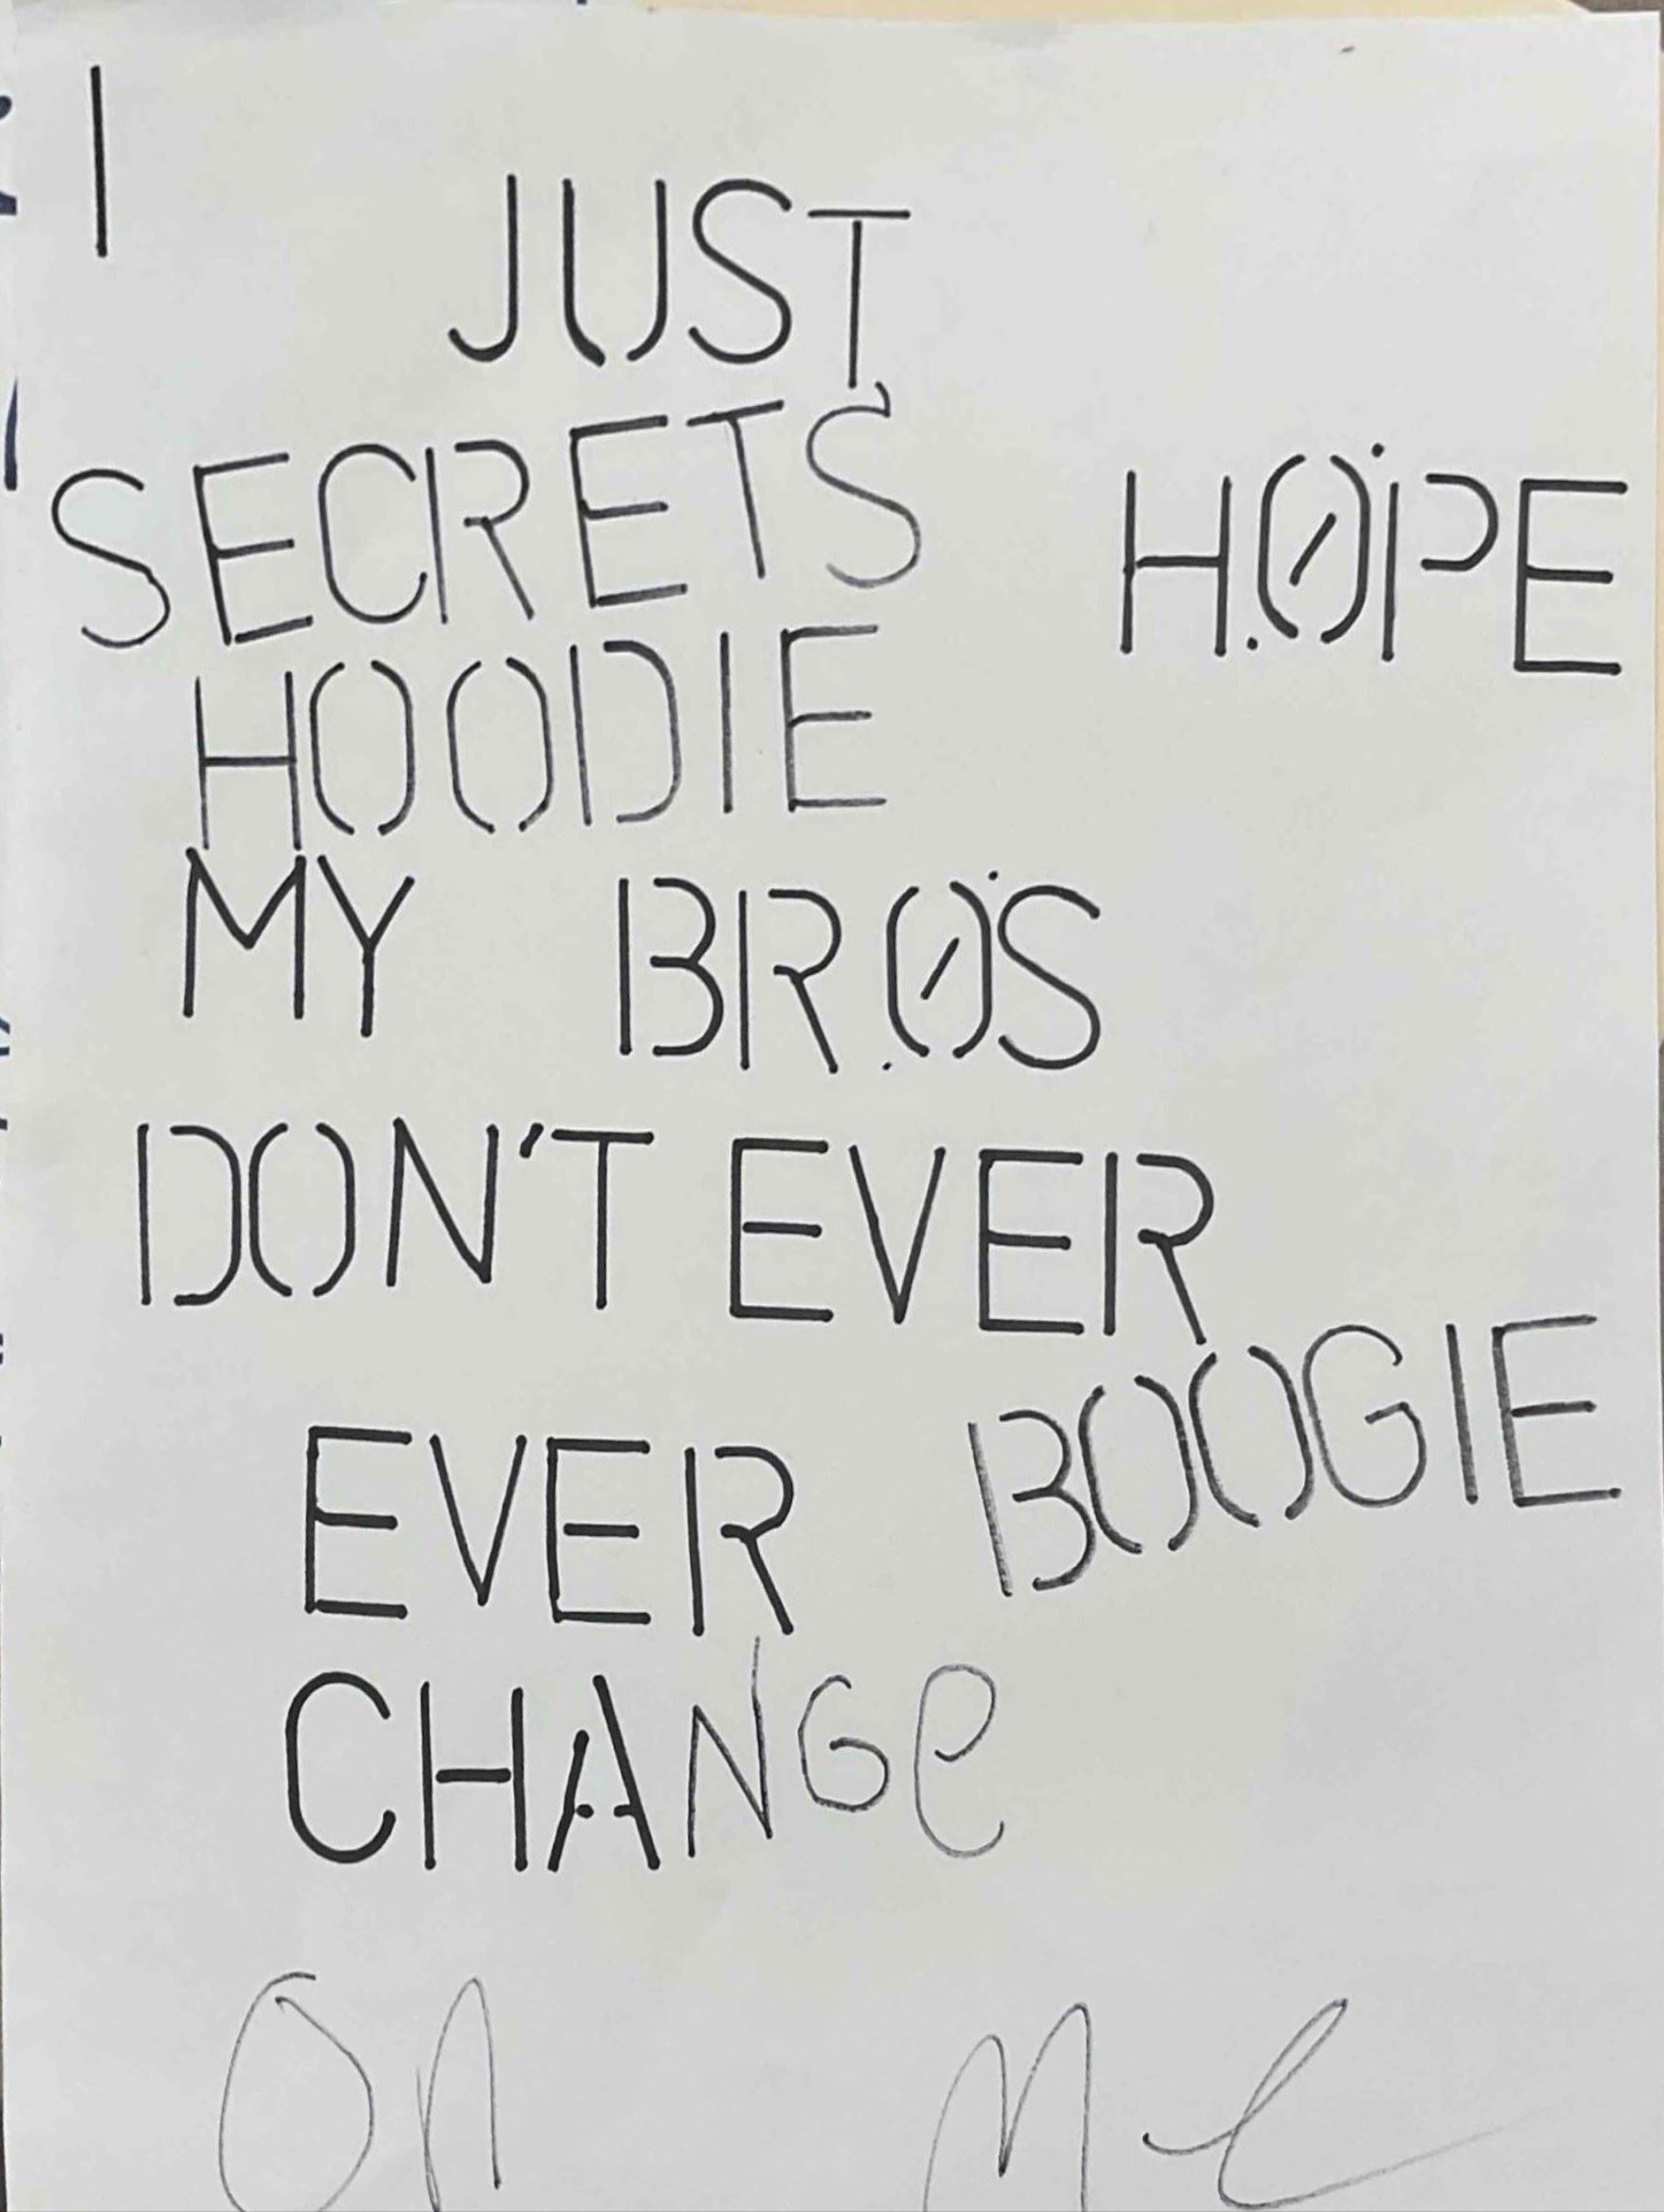 I
JUST
SECRETS HOPE
HOODIE
MY BROS
DON'T EVER
EVER BOOGIE
CHANGe
On Me